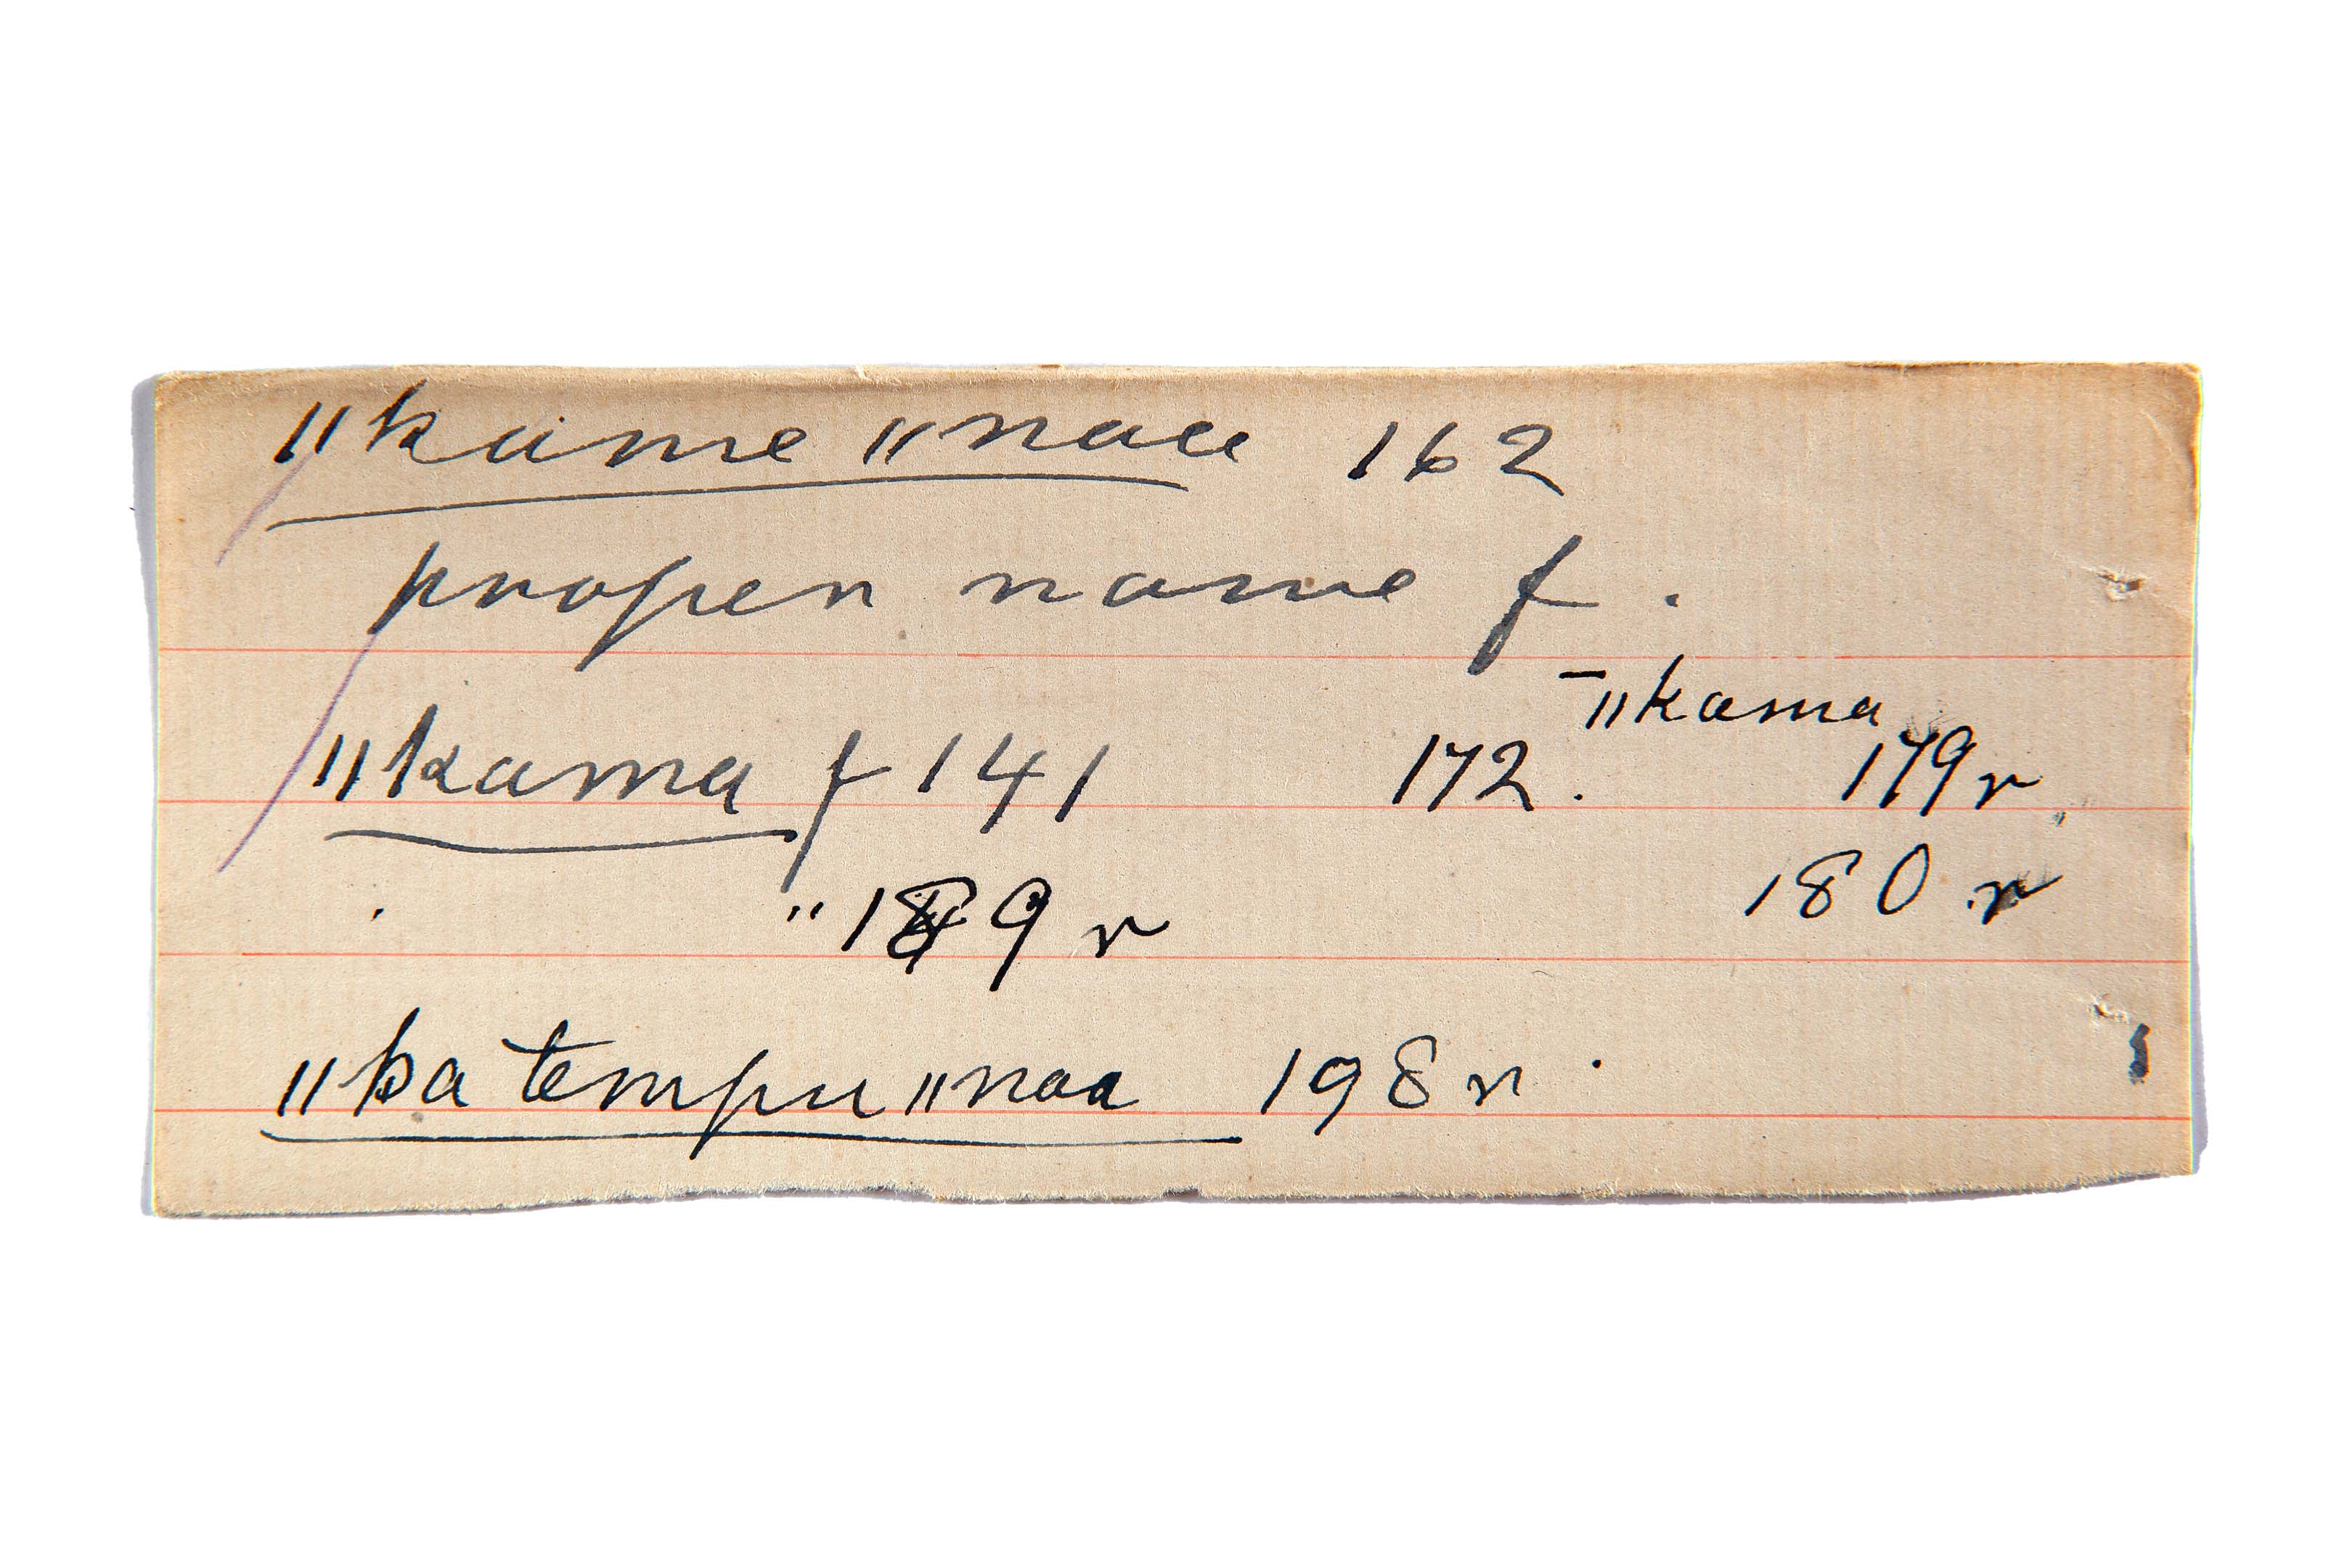 "kame "naa 162
proper name f.
‾"kama
"kama f 141 172. 179 r
" 189 r 180 r
"ka tempu "naa 198 r.